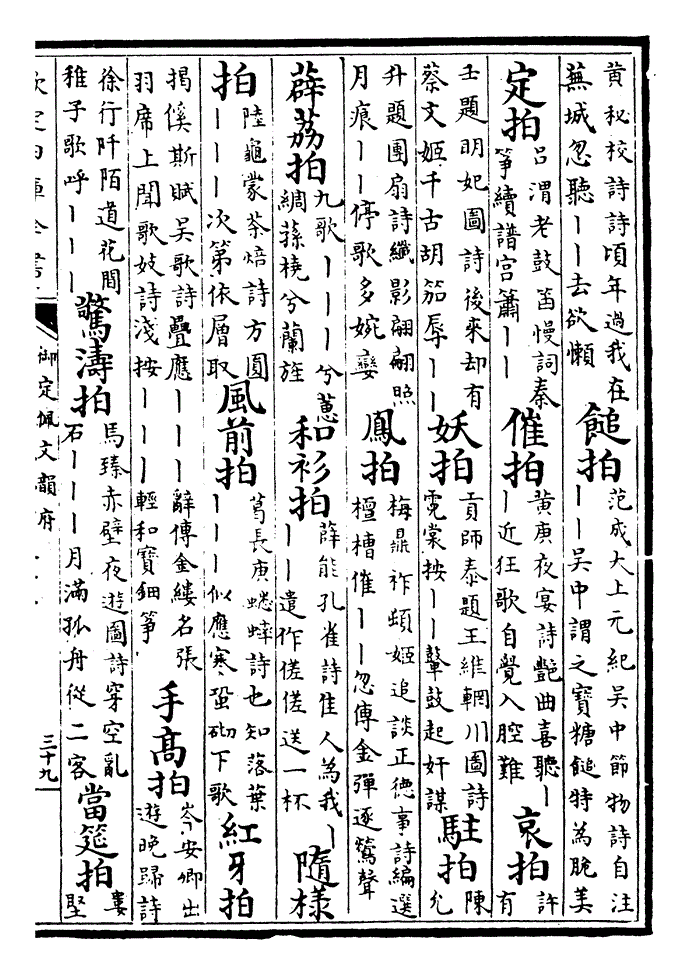 黄秘校詩詩頃年過我在
蕪城忽聽丨丨去欲懶
䭔拍
范成大上元紀吳中節物詩自注
丨丨吳中謂之寶糖䭔特為脆美
定拍
吕渭老鼓笛慢詞秦
箏續譜宫簫丨丨
催拍
黄庚夜宴詩艷曲喜聽丨
丨近狂歌自覺入腔難
哀拍
許
有
壬題明妃圖詩後來却有
蔡文姬千古胡笳辱丨丨
妖拍
貢師泰題王維輞川圖詩
霓裳按丨丨鼙鼓起奸謀
駐拍
陳
允
升題團扇詩纖影翩翩照
月痕丨丨停歌多婉孌
鳳拍
梅鼎祚頓姬追談正徳事詩編選
檀槽催丨丨忽傳金彈逐鶯聲
薜荔拍
九歌丨丨丨兮蕙
綢蓀橈兮蘭旌
和衫拍
薛能孔雀詩佳人為我丨
丨丨遣作傞傞送一杯
隨様
拍
陸龜蒙茶焙詩方圓
丨丨丨次第依層取
風前拍
葛長庚蟋蟀詩也知落葉
丨丨丨似應寒蛩砌下歌
紅牙拍
揭傒斯賦吳歌詩疊應丨丨丨辭傳金縷名張
羽席上聞歌妓詩淺按丨丨丨輕和寶鈿箏
手髙拍
岑安卿出
遊晚歸詩
徐行阡陌道花間
稚子歌呼丨丨丨
驚濤拍
馬臻赤壁夜遊圖詩穿空亂
石丨丨丨月滿孤舟從二客
當筵拍
婁
堅
欽定四庫全書
御定佩文韻府
三十九